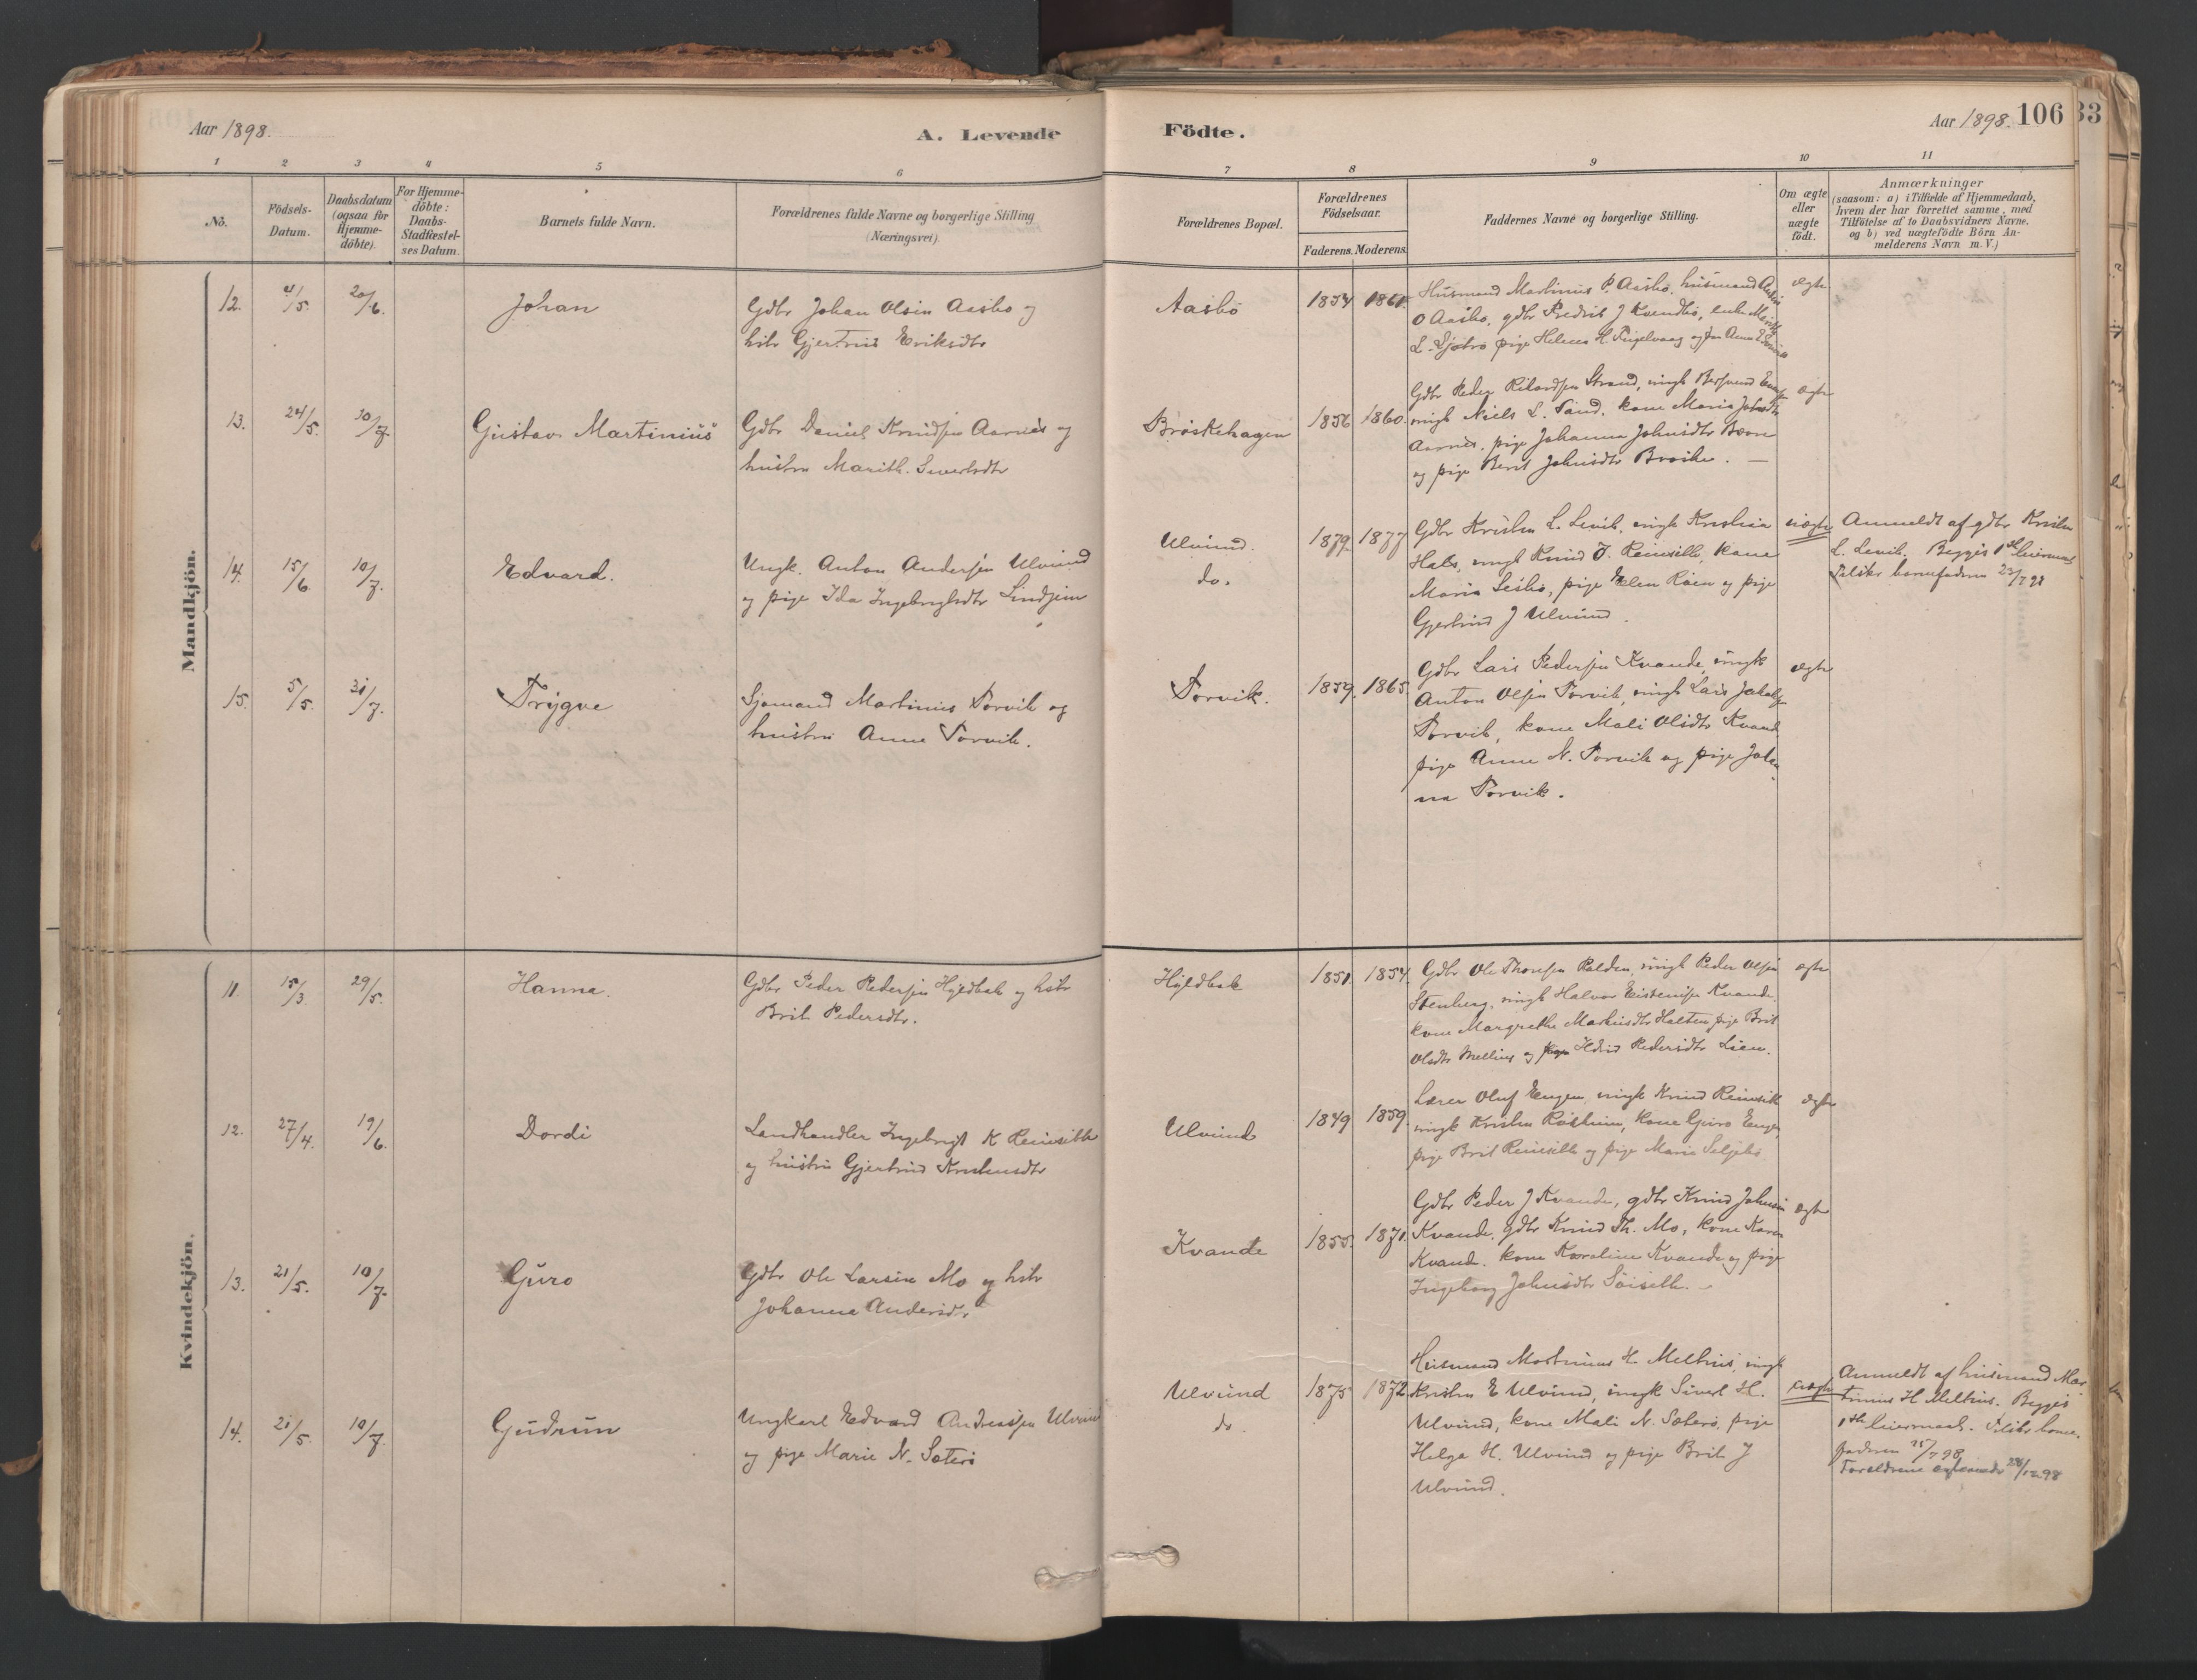 Aar 1898.
A. Levende
Födte.
Aar 1898.
106
33
1 2 3 4 5 6 7 8 9 10 11
No.
Födsels-
Datum.
Daabsdatum
(ogsaa for
Hjemme-
döbte).
For Hjemme-
döbte:
Daabs-
Stadfæstel-
ses Datum.
Barnets fulde Navn.
Forældrenes fulde Navne og borgerlige Stilling
(Næringsvei).
Forældrenes Bopæl.
Forældrenes
Födselsaar.
Faderens. Moderens.
Faddernes Navne og borgerlige Stilling.
Om ægte
eller
uægte
födt.
Anmærkninger
(saasom: a) i Tilfælde af Hjemmedaab,
hvem der har forrettet samme, med
Tilföielse af to Daabsvidners Navne,
og b) ved uægtefödte Börn An-
melderens Navn m. V.)
Mandkjön.
12. 4/5. 20/6.
Johan
Gdbr Johan Olsen Aasbø og
hstr Gjertrud Eriksdtr
Aasbø
1854 1861.
Husmand Martinus P Aasbø, husmand
O Aasbø, gdbr Fredrik J Kvendbø, enke
L. pige Helene H.
ægte
13. 24/5. 10/7.
Gustav Martinius
Gdbr Daniel Knudsen Aarnes og
hustru Marith Sivertsdtr
Brøskehagen
1856 1860.
Gdbr Peder Strand, ungk
ungk Niels L. Sand, kone Maria Johnsdtr
Aarnes, pige Johanna Johnsdtr
og pige Berit Johnsdtr Brøske.
ægte
14. 15/6. 10/7.
Edvard.
Ungk. Anton Andersen Ulvund
og pige Ida Ingebrigtsdtr Lindjem
Ulvund.
do.
1879 1877
Gdbr Kristen L. Levik, ungk Kristian
Hals, ungk Knud J. Reinsilh, kone
Maria pige Elen Røen og pige
Gjertrud J Ulvund.
uægte
Anmeldt af gdbr Kristen
L. Levik. Begges 1ste Leiermaal
Tilskr barnefaderen 23/7 98
15. 5/5. 31/7.
Trygve
Sjømand Martinus Torvik og
hustru Anne Torvik.
Torvik.
1859. 1865.
Gdbr Lars Pedersen Kvande, ungk
Anton Olsen Torvik, ungk Lars
Torvik, kone Mali Olsdtr Kvand
pige Anne N. Torvik og pige Johan
na Torvik.
ægte
Kvindekjön.
11. 15/3. 29/5.
Hanna.
Gdbr Peder Pedersen Hyldbak og hstr
Brit Pedersdtr.
Hyldbak
1851. 1854.
Gdbr Ole Thoresen ungk Peder Olsen
Stenberg, ungk Halvor Kvande,
kone Margrethe Halten pige Brit
Olsdtr og pige Pedersdtr Lien.
ægte
12. 27/4. 19/6.
Dordi
Landhandler Ingebrigt K Reinsilh
og hustru Gjertrud Knudsdtr
Ulvund
1849 1859.
Lærer Oluf Engen, ungk Knud Reinsilh
ungk Kristen kone Guro Engen,
pige Brit Reinsilh og pige Marie Seljebø
ægte
13. 21/5. 10/7.
Guro
Gdbr Ole Larsen Mo og hstr
Johanna Andersdtr
Kvande
1855. 1871.
Gdbr Peder J Kvande, gdbr Knud Johnsen
Kvande, gdbr Knud Th. Mo, kone Karen
Kvande, kone Karoline Kvande og pige
Ingeborg Johnsdtr
ægte
14. 21/5. 10/7.
Gudrun
Ungkarl Edvard Andreassen Ulvund
og pige Marie N. Sæterø
Ulvund
do.
1875 1872
Husmand Martinus H. Melhus, ungk
Kristen E Ulvund, ungk Sivert H.
Ulvund, kone Mali N. Sæterø, pige
Helga H. Ulvund og pige Brit J
Ulvund.
uægte
Anmeldt af husmand Mar-
tinus H Melhus. Begges
1ste leiermaal. Tilskr barne-
faderen 25/7 98
Forældrene egteviede 28/12 98